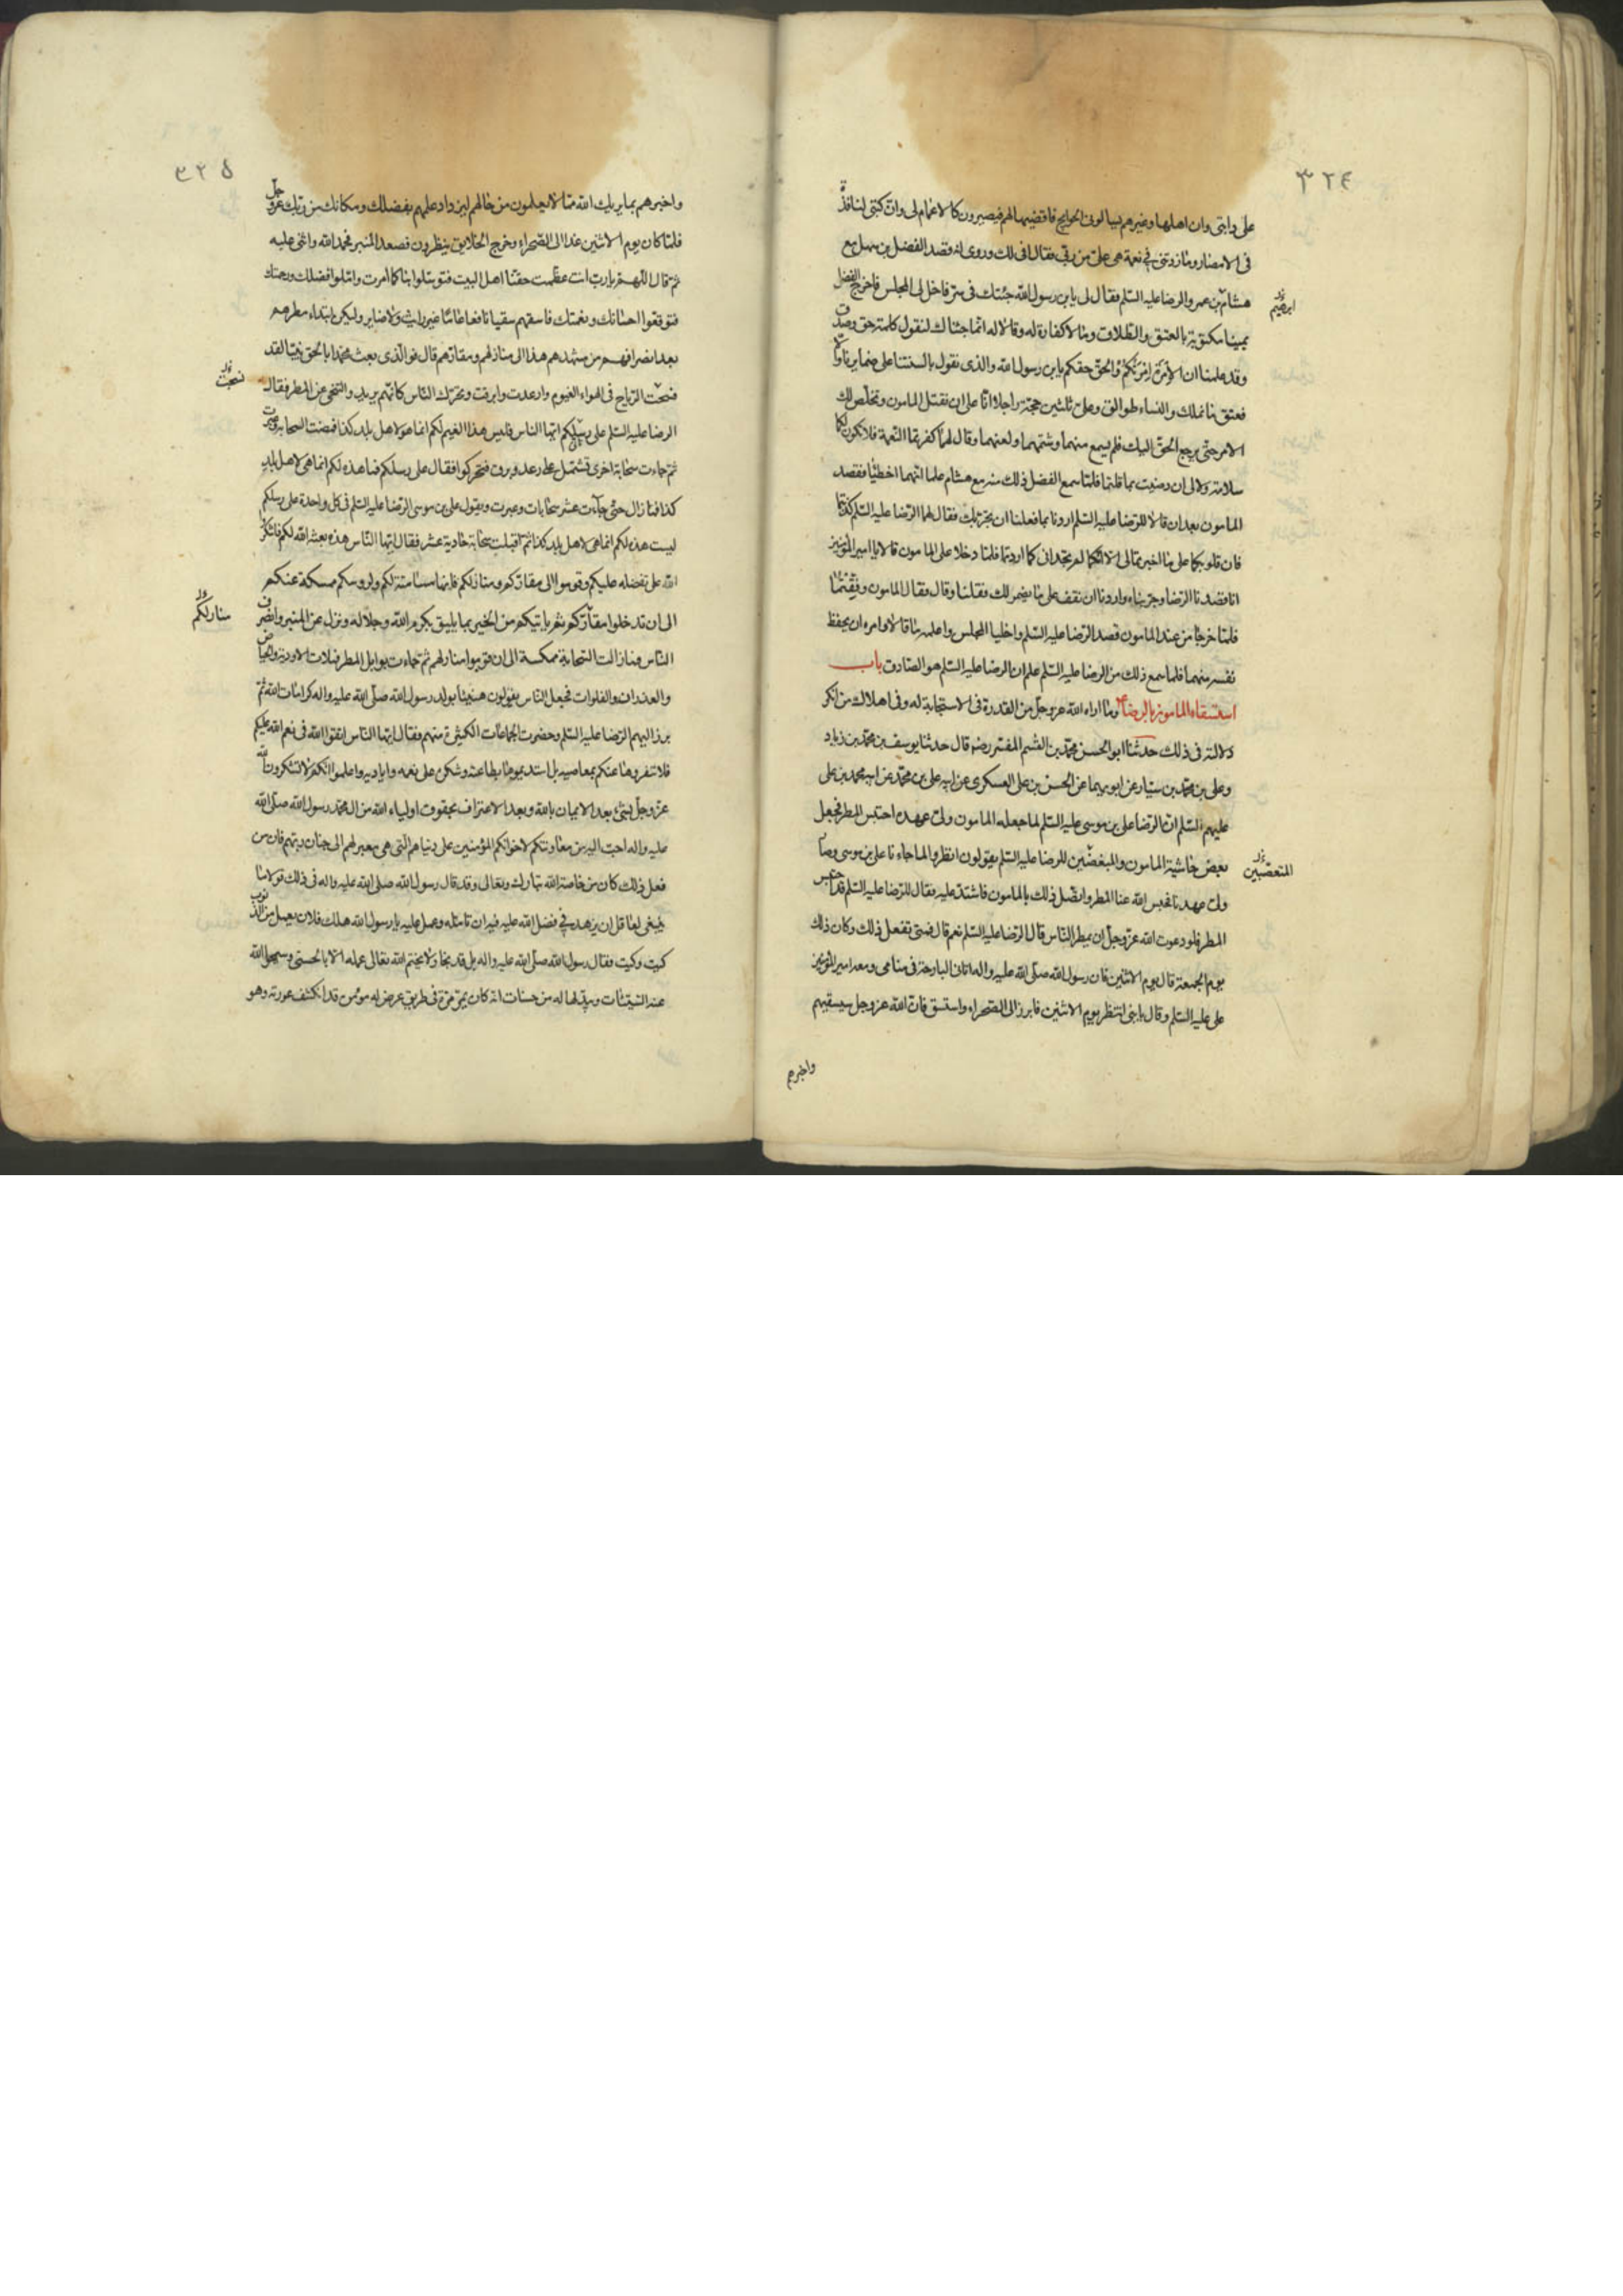 ٣٢٤
على دابتى وان اهلها وغيرهم يسالونى الحوايج فاقضيها لهم فيصيرون كالاعمام لى وان كتبى لنافذة
فى الامصار وما زدتنى فى نعمة هى على من ربى فقال افى لك وروى انه قصد الفضل بن سهل مع
هشام بن عمر والرضا عليه السلم فقال له يابن رسول الله جئتك فى سر فاخل لى المجلس فاخرج الفضل
ابرهيم
يمينا مكتوبة بالعتق والطلاق وما لا كفارة له وقالا له انما جئناك لنقول كلمة حق وصدق
وقد علمنا ان الامرة امرتكم والحق حقكم يابن رسول الله والذى نقول بالسنتنا عليه ضمايرنا والا
فعتق ما نملك والنساء طوالق وعلى ثلثين حجة راجلا انا على ان نقتل المامون ونخلص لك
الامر حتى يرجع الحق اليك فلم يسمع منهما وشتمهما ولعنهما وقال لهما كفرتما النعمة فلا تكون لكما
سلامة ولا لى ان رضيت بما قلتما فلما سمع الفضل ذلك منه مع هشام علما انهما اخطئا فقصد
المامون بعد ان قالا للرضا عليه السلم اردنا بما فعلنا ان نجربك فقال لهما الرضا عليه السلم كذبتما
فان قلوبكما على ما اخبرتمانى الا انكما لم تجدانى كما اردتما فلما دخلا على المامون قالا يا امير المؤمنين
انا قصدنا الرضا وجربناه واردنا ان نقف على ما يضمر لك فقلنا وقال فقال المامون وفقتما
فلما خرجا من عند المامون قصد الرضا عليه السلم واخليا المجلس واعلمه ما قالا وامره ان يحفظ
نفسه منهما فلما سمع ذلك من الرضا عليه السلم علم ان الرضا عليه السلم هو الصادق باب
استسقاء المامون بالرضا ع وما اراه الله عز وجل من القدرة فى الاستجابة له وفى اهلاك من انكر
دلالته فى ذلك حدثنا ابو الحسن محمد بن القسم المفسر رضه قال حدثنا يوسف بن محمد بن زياد
وعلى بن محمد بن سيار عن ابويهما عن الحسن بن على العسكرى عن ابيه على بن محمد عن ابيه محمد بن على
عليهم السلم ان الرضا على بن موسى عليه السلم لما جعله المامون ولى عهده احتبس المطر فجعل
بعض حاشية المامون والمبغضين للرضا عليه السلم يقولون انظروا لما جاءنا على بن موسى وصار
المتعصبين
ولى عهدنا فحبس الله عنا المطر واتصل ذلك بالمامون فاشتد عليه فقال للرضا عليه السلم قد احتبس
المطر فلو دعوت الله عز وجل ان يمطر الناس قال الرضا عليه السلم نعم قال فمتى تفعل ذلك وكان ذلك
يوم الجمعة قال يوم الاثنين فان رسول الله صلى الله عليه واله اتانى البارحة فى منامى ومعه امير المؤمنين
على عليه السلم وقال يا بنى انتظر يوم الاثنين فابرز الى الصحراء واستسق فان الله عز وجل سيسقيهم
واخبرهم
٣٢٥
واخبرهم بما يريك الله مما لا يعلمون من حالهم ليزداد علمهم بفضلك ومكانك من ربك عز وجل
فلما كان يوم الاثنين غدا الى الصحراء وخرج الخلايق ينظرون فصعد المنبر فحمد الله واثنى عليه
ثم قال اللهم يا رب انت عظمت حقنا اهل البيت فتوسلوا بنا كما امرت واملوا فضلك ورحمتك
فتوقعوا احسانك ونعمتك فاسقهم سقيا نافعا عاما غير رايث ولا ضاير وليكن ابتداء مطرهم
بعد انصرافهم من مشهدهم هذا الى منازلهم ومقارهم قال فوالذى بعث محمدا بالحق نبيا لقد
فنسجت الرياح فى الهواء الغيوم وارعدت وابرقت وتحرك الناس كانهم يريدون التنحى عن المطر فقال
نسجت
الرضا عليه السلم على رسلكم ايها الناس فليس هذا الغيم لكم انما هو لاهل بلد كذا فمضت السحابة وعبرت
ثم جاءت سحابة اخرى تشتمل على رعد وبرق فتحركوا فقال على رسلكم فما هذه لكم انما هى لاهل بلد
كذا فما زال حتى جاءت عشر سحابات وعبرت ويقول على بن موسى الرضا عليه السلم فى كل واحدة على رسلكم
ليست هذه لكم انما هى لاهل بلد كذا ثم اقبلت سحابة حادية عشر فقال ايها الناس هذه بعثها الله لكم فاشكروا
الله على تفضله عليكم وقوموا الى مقاركم ومنازلكم فانها مسامتة لكم ولرؤسكم ممسكة عنكم
الى ان تدخلوا مقاركم ثم ياتيكم من الخير بما يليق بكرم الله وجلاله ونزل عن المنبر وانصرف
منازلكم
الناس فما زالت السحابة ممسكة الى ان قربوا منازلهم ثم جاءت بوابل المطر فملات الاودية والحياض
والغدران والفلوات فجعل الناس يقولون هنيئا لولد رسول الله صلى الله عليه واله كرامات الله ثم
برز اليهم الرضا عليه السلم وحضرت الجماعات الكثيرة منهم فقال ايها الناس اتقوا الله فى نعم الله عليكم
فلا تنفروها عنكم بمعاصيه بل استديموها بطاعته وشكره على نعمه واياديه واعلموا انكم لا تشكرون الله
عز وجل بشئ بعد الايمان بالله وبعد الاعتراف بحقوق اولياء الله من ال محمد رسول الله صلى الله
عليه واله احب اليه من معاونتكم لاخوانكم المؤمنين على دنياهم التى هى معبر لهم الى جنان ربهم فان من
فعل ذلك كان من خاصة الله تبارك وتعالى وقد قال رسول الله صلى الله عليه واله فى ذلك قولا ما
ينبغى لعاقل ان يزهد فى فضل الله عليه فيه ان تامله وعمل عليه يا رسول الله هلك فلان يعمل من الذنوب
كيت وكيت فقال رسول الله صلى الله عليه واله بل قد نجا ولا يختم الله تعالى عمله الا بالحسنى وسيمحو الله
عنه السيئات ويبدلها له من حسنات انه كان يمر مرة فى طريق عرض له مؤمن قد انكشف عورته وهو